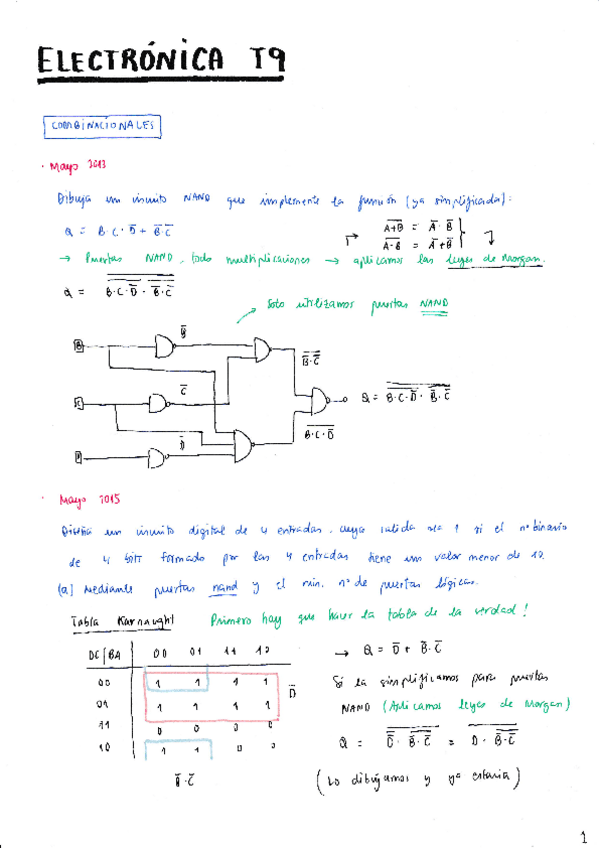 ELECTRÓNICA T9
COMBINACIONALES
· Mayo 2013
Dibuja un circuito NAND que implemente la función (ya simplificada):
Q = B·C·D̅ + B̅·C̅
A̅+̅B̅ = A̅ · B̅
A̅·̅B̅ = A̅ + B̅
→ Puertas NAND, todo multiplicaciones → aplicamos las leyes de Morgan.
Q = B̿·̿C̿·̿D̿ · B̿·̿C̿
→ Solo utilizamos puertas NAND
B
B̅
B̅·C̅
C
C̅
Q = B·C·D̅ · B̅·C̅
D̅
B·C·D̅
· Mayo 2015
Diseña un circuito digital de 4 entradas, cuya salida sea 1 si el nº binario
de 4 bits formado por las 4 entradas tiene un valor menor de 10.
(a) Mediante puertas nand y el min. nº de puertas lógicas.
Tabla Karnaught Primero hay que hacer la tabla de la verdad!
DC/BA 00 01 11 10
00 1 1 1 1
01 1 1 1 1
11 0 0 0 0
10 1 1 0 0
D̅
B̅·C̅
→ Q = D̅ + B̅·C̅
Si la simplificamos para puertas
NAND (Aplicamos leyes de Morgan)
Q = D̿ · B̅·C̅ = D · B̅·C̅
(Lo dibujamos y ya estaría)
1